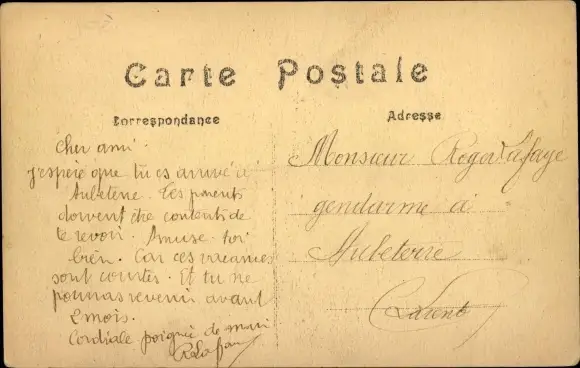 Carte Postale
Correspondance
Adresse
Cher ami.
j'espère que tu es arrivé à
Aubeterre. Tes parents
doivent être contents de
te revoir. Amuse toi
bien. Car ces vacances
sont courtes. Et tu ne
pourras revenir avant
2 mois.
Cordiale poignée de main
Monsieur Roger Lafaye
gendarme à
Aubeterre